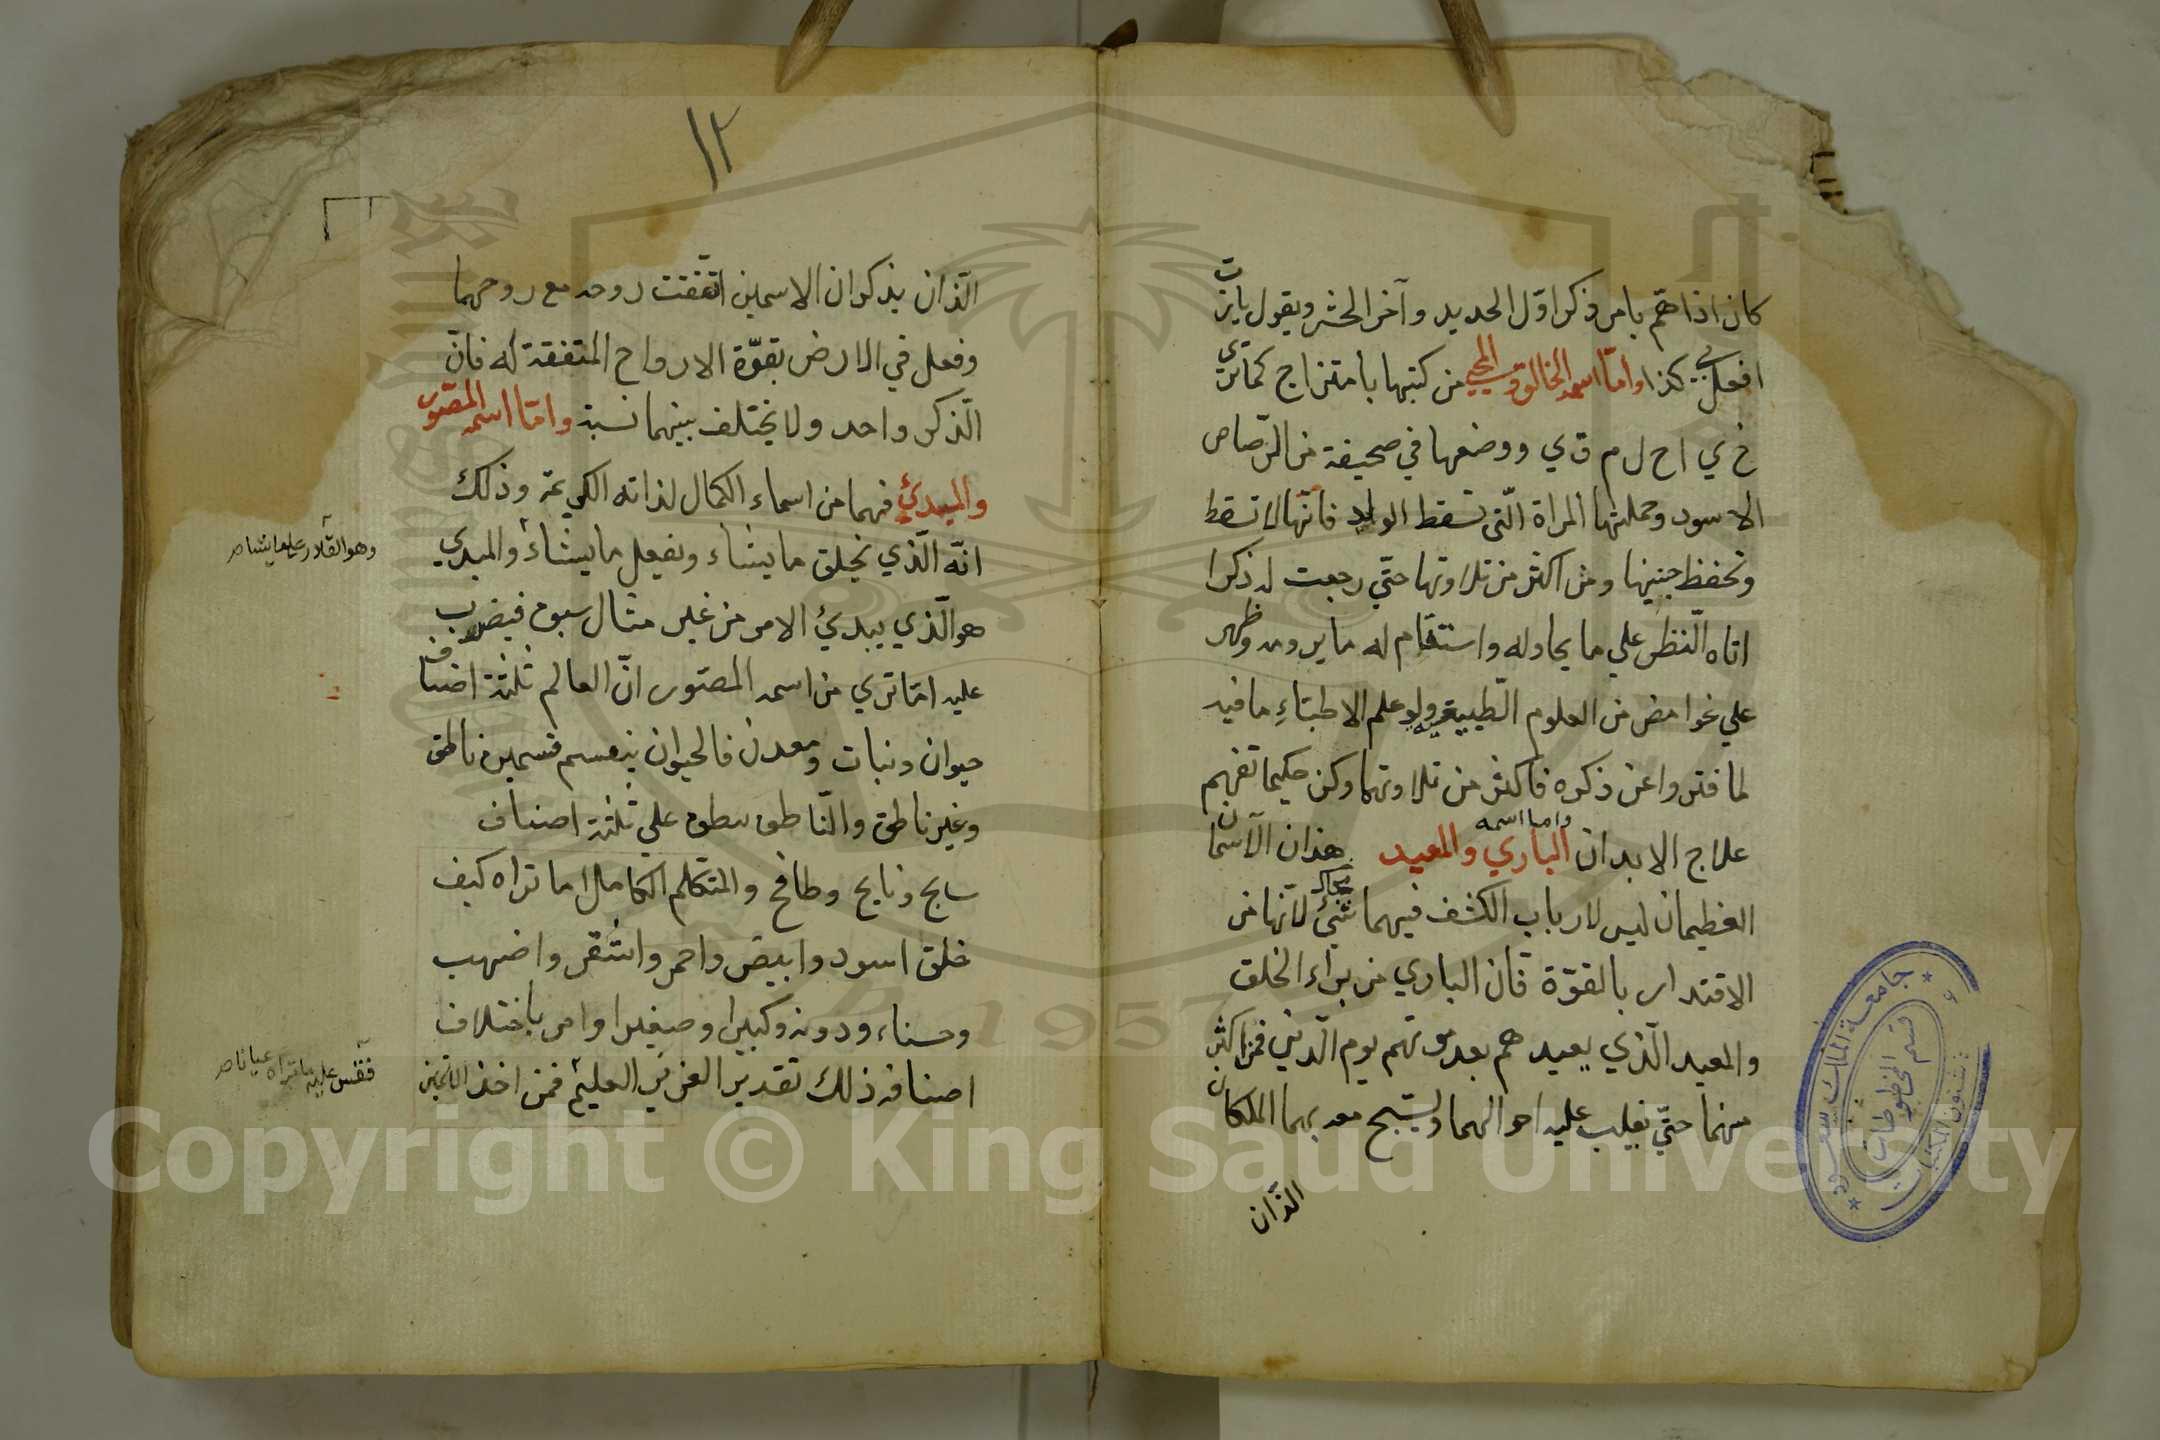 كان اذا همّ بامر ذكر اوّل الحديد وآخر الحشر ويقول يارب
افعل بي كذا وامّا اسمه الخالق المحيي من كتبها بامتزاج كما ترى
خ ي ا ح ل م ق ي ووضعها في صحيفة من الرّصاص
الاسود وحملتها المراة الّتي تسقط الولد فانّها لا تسقط
وتحفظ جنينها ومن اكثر من تلاوتها حتّي رجعت له ذكرا
اتاه النّظر علي ما يحاوله واستقام له ما يرومه وظهر
علي غوامض من العلوم الطّبيبية ولو علم الاطبّاءِ ما فيه
لما فتروا عن ذكره فاكثر من تلاوتها وكن حكيما تفهم
علاج الابدان واما اسمه الباري والمعيد هذان الاسمان
العظيمان ليس لارباب الكشف فيهما شيئ لانّها من
الاقتدار بالقوّة فان الباري من براء الخلق
والمعيد الّذي يعيدهم بعد موتهم يوم الدّين فمن اكثر
منهما حتّي يغلب عليه احوالهما ويسبّح معه بهما الملكان
الذّان
١٢
الّذان يذكران الاسمين اتّفقت روحه مع روحهما
وفعل في الارض بقوّة الارواح المتفقة له فانّ
الذّكر واحد ولا يختلف بينهما نسبة وامّا اسمه المصّور
والمبدئ فهما من اسماء الكمال لذاته الكريمة وذلك
انّه الّذي يخلق ما يشاء ويفعل ما يشاء والمبدي
وهو القادر علي ما يشاء صر
هو الّذي يبدئ الامر من غير مثال سبق فيضرب
عليه امّا تري من اسمه المصّور انّ العالم ثلثة اصناف
حيوان ونبات ومعدن فالحيوان ينقسم قسمين ناطق
وغير ناطق والنّاطق ينطق علي ثلثة اصناف
سابح ونابح وطافح والمتكلم الكامل اما تراه كيف
خلق اسود وابيض واحمر واشقر واصهب
وحسناء ودونه وكبيرا وصغيرا وامر باختلاف
فقس عليه ما تراه عيانا صر
اصنافه ذلك تقدير العزيز العليم فمن اخذ الاسمين
جامعة الملك سعود
قسم المخطوطات
شئون المكتبات
1957
Copyright © King Saud University